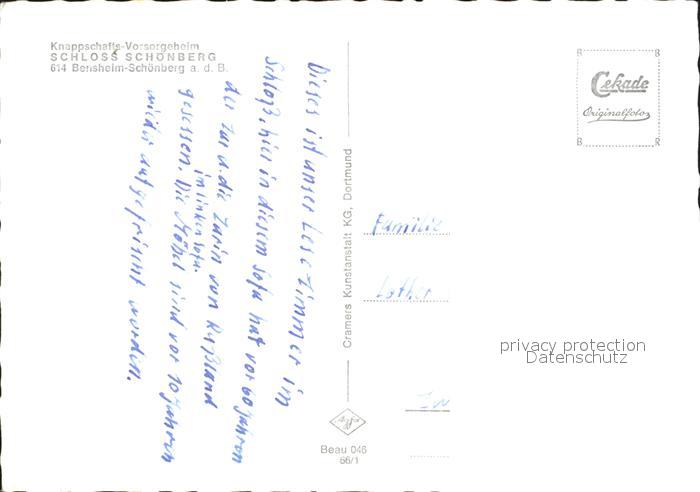 Knappschafts-Vorsorgeheim
SCHLOSS SCHÖNBERG
614 Bensheim-Schönberg a. d. B.
Dieses ist unser Lesezimmer im
Schloß, hier in diesem Sofa hat vor 60 Jahren
der Zar u. die Zarin von Rußland
im linken Sofa.
gesessen. Die Möbel sind vor 10 Jahren
wieder aufgefrischt worden.
Cramers Kunstanstalt KG, Dortmund
Agfa
Beau 046
66/1
Cekade
Originalfoto
Familie
Lothar
privacy protection
Datenschutz